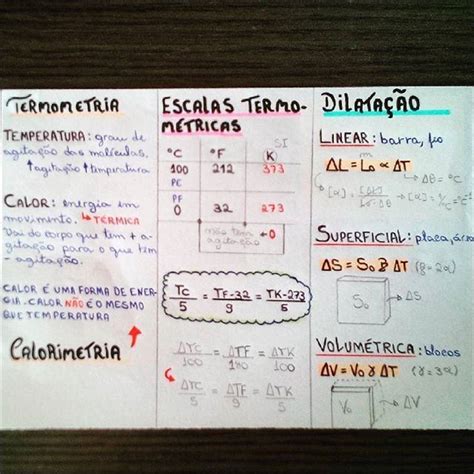 TERMOMETRIA
TEMPERATURA: grau de
agitação das moléculas.
↑agitação ↑temperatura
CALOR: energia em
movimento. ↳ TÉRMICA
Vai do corpo que tem + a-
gitação para o que tem
- agitação.
CALOR É UMA FORMA DE ENER-
GIA. CALOR NÃO É O MESMO
QUE TEMPERATURA
CALORIMETRIA
ESCALAS TERMO-
MÉTRICAS
SI
°C °F K
100 212 373
PE
PF
0 32 273
não tem ← 0
agitação
TC/5 = TF-32/9 = TK-273/5
ΔTC/100 = ΔTF/180 = ΔTK/100
ΔTC/5 = ΔTF/9 = ΔTK/5
DILATAÇÃO
LINEAR: barra, fio
ΔL = L₀ α ΔT
↳ Δθ = °C
SUPERFICIAL: placa,
ΔS = S₀ β ΔT (β=2α)
S₀ → ΔS
VOLUMÉTRICA: blocos
ΔV = V₀ γ ΔT (γ=3α)
V₀ → ΔV